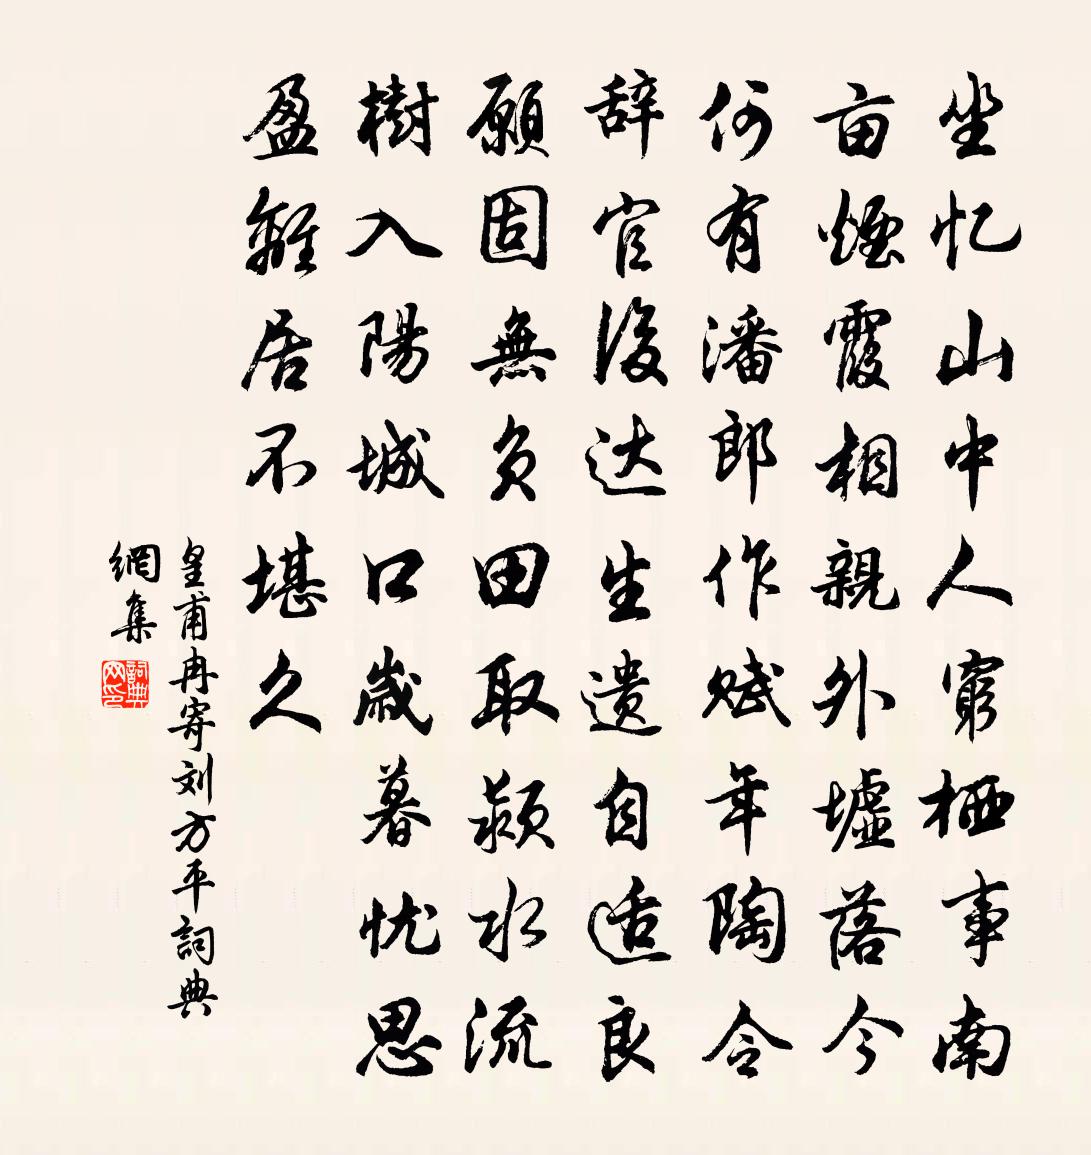 坐忆山中人窮栖事南
亩煙霞相親外墟落今
何有潘郎作赋年陶令
辞官後达生遗自适良
願固無负田取颍水流
樹入陽城口歲暮忧思
盈離居不堪久
皇甫冉寄刘方平詞典
網集
詞典
网印